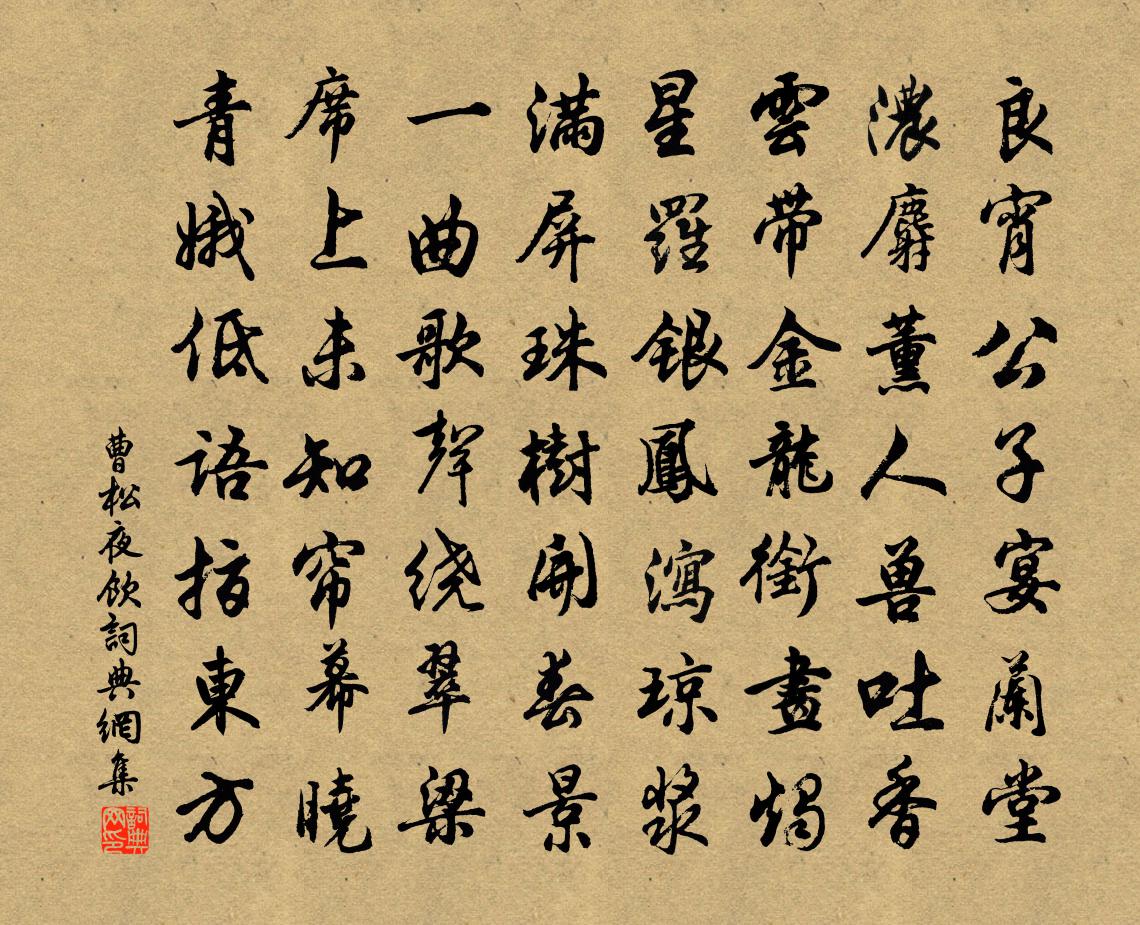 良宵公子宴蘭堂
濃麝薰人兽吐香
雲带金龍銜畫燭
星羅銀鳳瀉琼漿
满屏珠樹開春景
一曲歌聲绕翠梁
席上未知帘幕曉
青娥低語指東方
曹松夜飲詞典網集
詞典网印